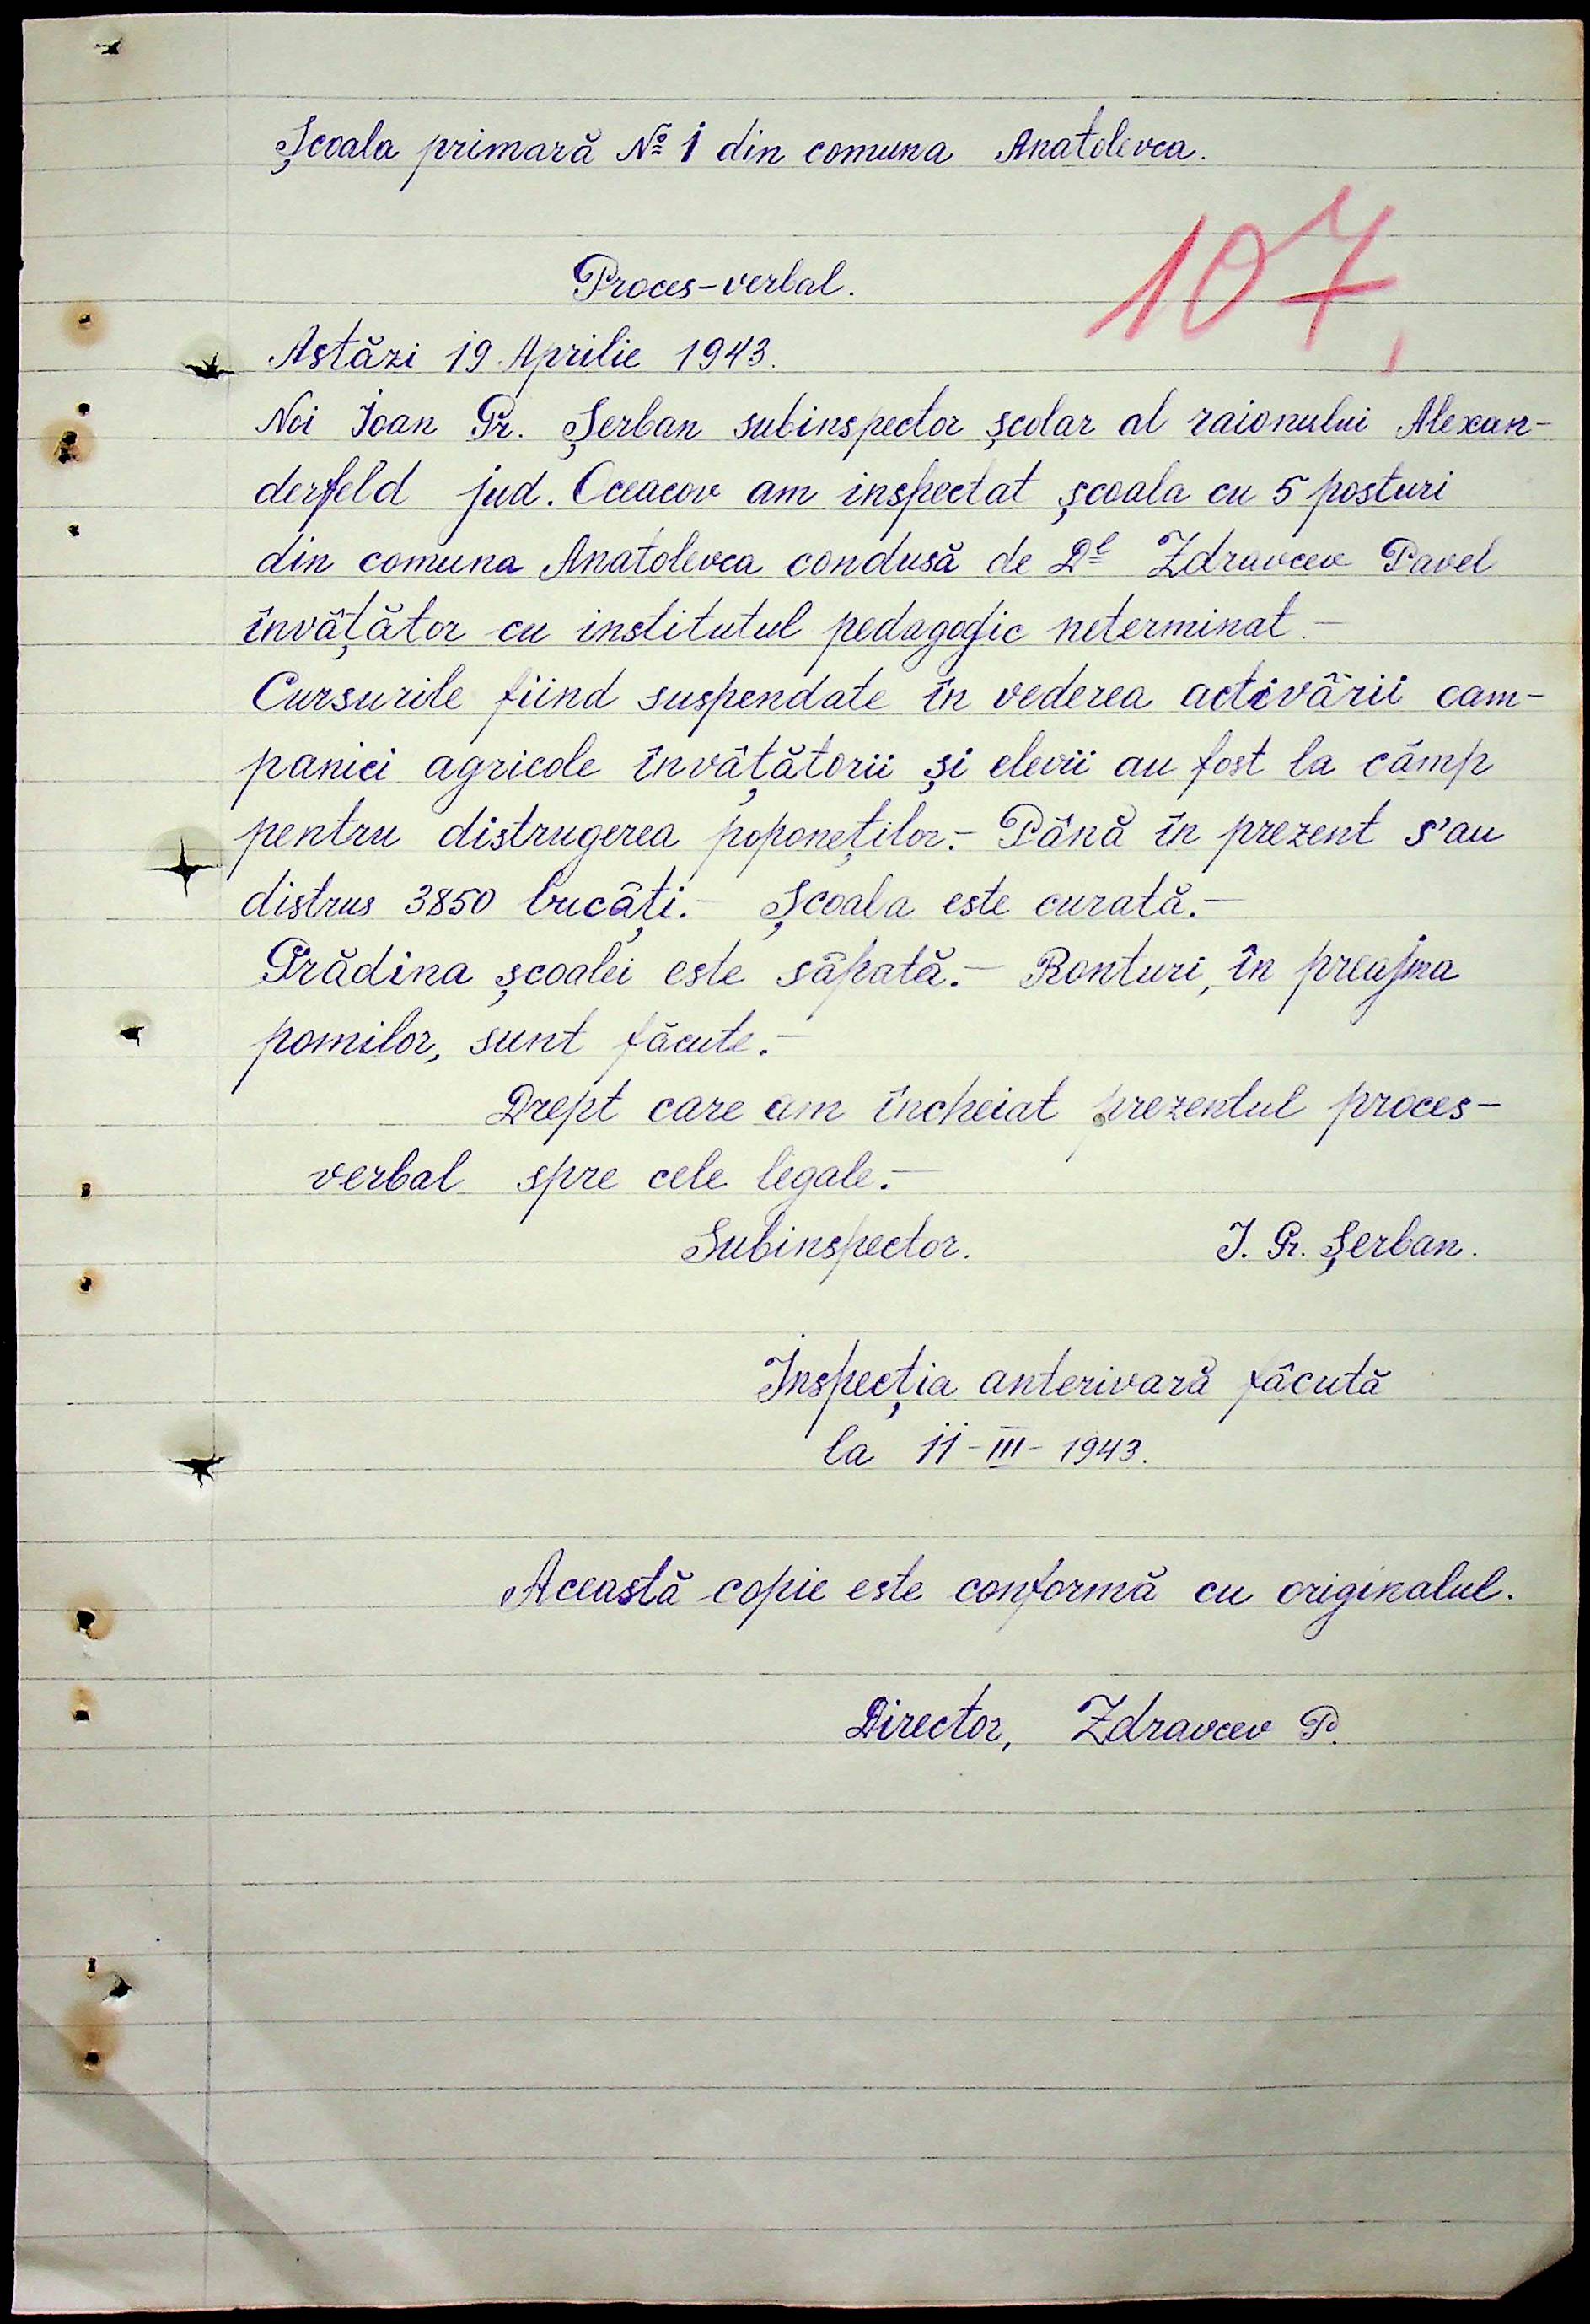 Școala primară № 1 din comuna Anatolevca.
107,
Proces-verbal.
Astăzi 19 Aprilie 1943.
Noi Ioan Gr. Șerban subinspector școlar al raionului Alexan-
derfeld jud. Oceacov am inspectat școala cu 5 posturi
din comuna Anatolevca condusă de Dl Zdravcev Pavel
învâțător cu institutul pedagogic neterminat.-
Cursurile fiind suspendate în vederea activârii cam-
paniei agricole învâțătorii și elevii au fost la câmp
pentru distrugerea poponeților.- Până în prezent s'au
distrus 3850 bucâți.- Școala este curată.-
Grădina școalei este sâpată.- Ronturi, în preajma
pomilor, sunt făcute.-
Drept care am încheiat prezentul proces-
verbal spre cele legale.-
Subinspector. I. Gr. Șerban.
Inspecția anterioară fâcută
la 11-III-1943.
Această copie este conformă cu originalul.
Director, Zdravcev P.